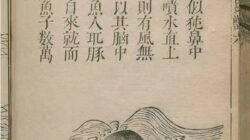 似鼻中
噴水直上
則有風無
以其腦中
魚入豚
自來就而
魚子數萬